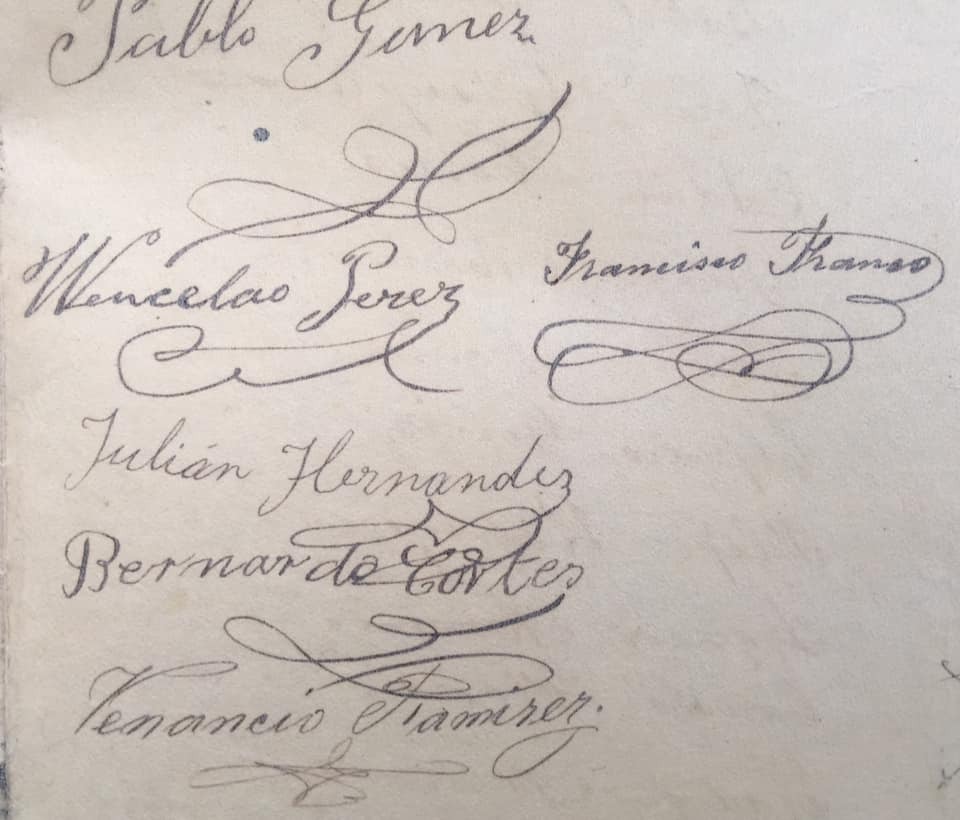 Pablo Gamez
Wencelao Perez
Francisco Franco
Julián Hernandez
Bernardo Cortes
Venancio Ramirez.